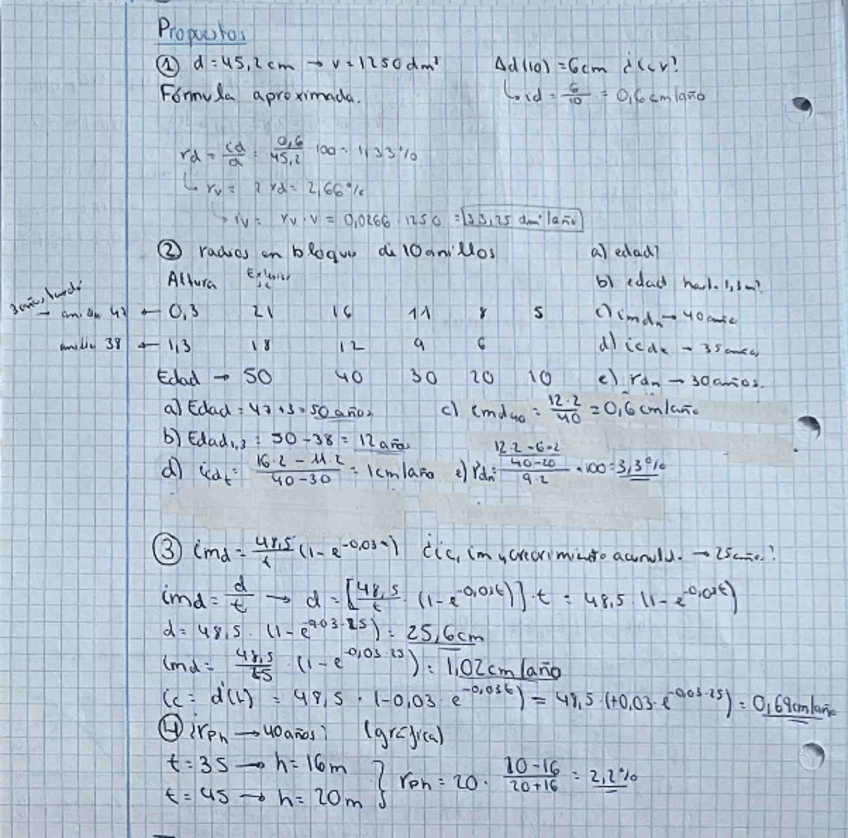 Propuestos
① d = 45,2 cm → v = 1250 dm³ Δd(10) = 6cm ¿icv?
Fórmula aproximada. ↳ icd = 6/10 = 0,6 cm/año
rd = cd/d = 0,6/45,2 · 100 = 1,33%
↳ rv = 2 rd = 2,66%
rv · v = 0,0266 · 1250 = 33,25 dm³/año
② radios en bloque de 10 anillos a) edad?
Altura b) edad hasta 1,3m?
0,3 21 16 11 8 5 c) imdn → 40 años
anillos 38 ← 1,3 18 12 9 6 → 35 años
Edad → 50 40 30 20 10 e) rdn → 30 años.
a) Edad = 47 + 3 = 50 años c) imd40 = 12·2/40 = 0,6 cm/año
b) Edad1,3 = 50 - 38 = 12 años
d) = 16·2 - 11·2/40 - 30 = 1cm/año e) rdn = 12·2 - 6·2/40-20/9·2 · 100 = 3,3%
③ imd = 48,5/t (1 - e^-0,03t) ¿ic, im y crecimiento acumuld. → 25 año.?
imd = d/t → d = [48,5/t · (1 - e^-0,03t)] · t = 48,5 · (1 - e^-0,03t)
d = 48,5 · (1 - e^-0,03·25) = 25,6cm
imd = 48,5/25 · (1 - e^-0,03·25) = 1,02 cm/año
ic = d'(t) = 48,5 · (-0,03 · e^-0,03t) = 48,5 · (+0,03 · e^-0,03·25) = 0,69cm/año
④ ¿rph → 40 años? (gráfica)
t = 35 → h = 16m
t = 45 → h = 20m } rph = 20 · 20 - 16/20 + 16 = 2,2%